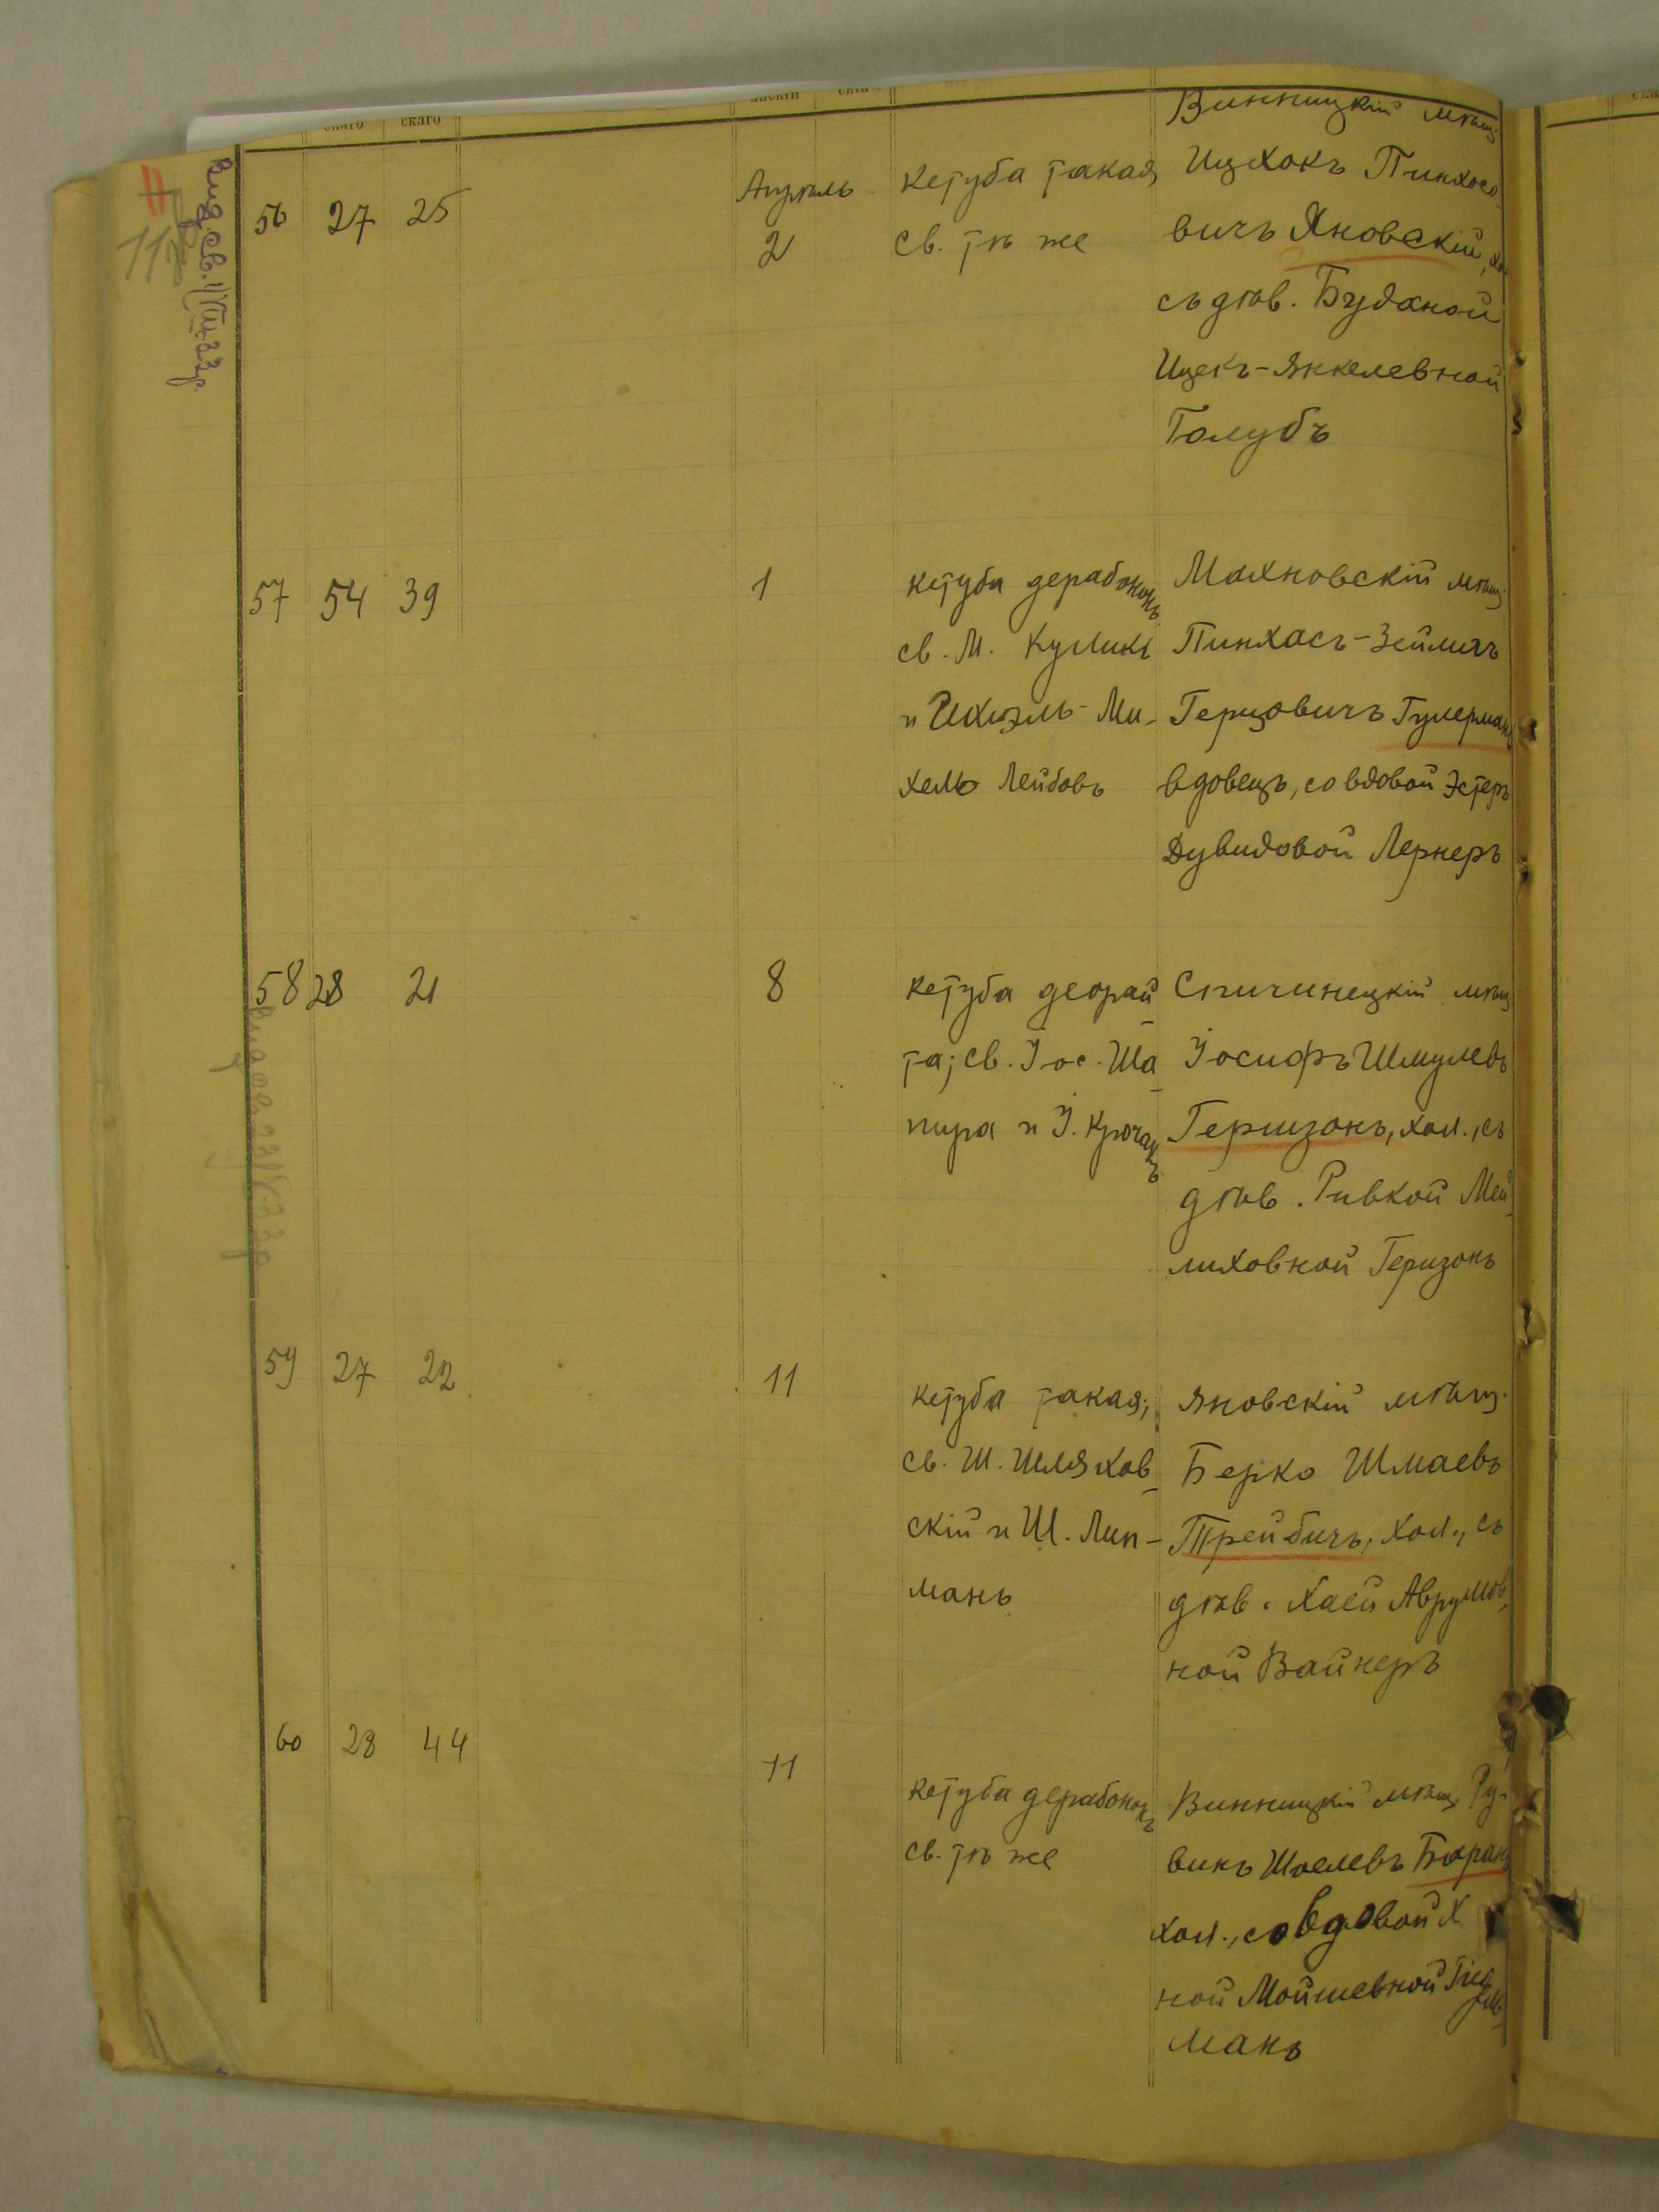 скаго скаго
Винницкій мѣщ.
56 27 25 Апрѣль 2
Кетуба такая
св. тѣ же
Ицхокъ Пинхасо-
вичъ Яновскій, хол.
съ дѣв.
Ицекъ-Янкелевной
Голубъ
57 54 39 1
Кетуба дерабононъ
св. М. Куликъ
и Ихиэль-Ми-
хель Лейбовъ
Махновскій мѣщ.
Пинхасъ-Зейличъ
Герцовичъ
вдовецъ, со вдовой Эстеръ
Дувидовой Лернеръ
58 28 21 8
Кетуба деорай-
та; св. Іос. Ша-
пира и І.
Спичинецкій мѣщ.
Іосифъ Шмулевъ
Гершзонъ, хол., съ
дѣв. Ривкой Мей-
лиховной Гершзонъ
59 27 22 11
Кетуба такая;
св. Ш. Шляхов-
скій и Ш. Лип-
манъ
Яновскій мѣщ.
Берко Шмаевъ
Трейбичъ, хол., съ
дѣв. Хаей Аврумов-
ной Вайнеръ
60 28 44 11
Кетуба дерабононъ
св. тѣ же
Винницкій мѣщ. Ру-
винъ Шоелевъ Баранъ
хол., со вдовой Х
ной Мойшевной
манъ